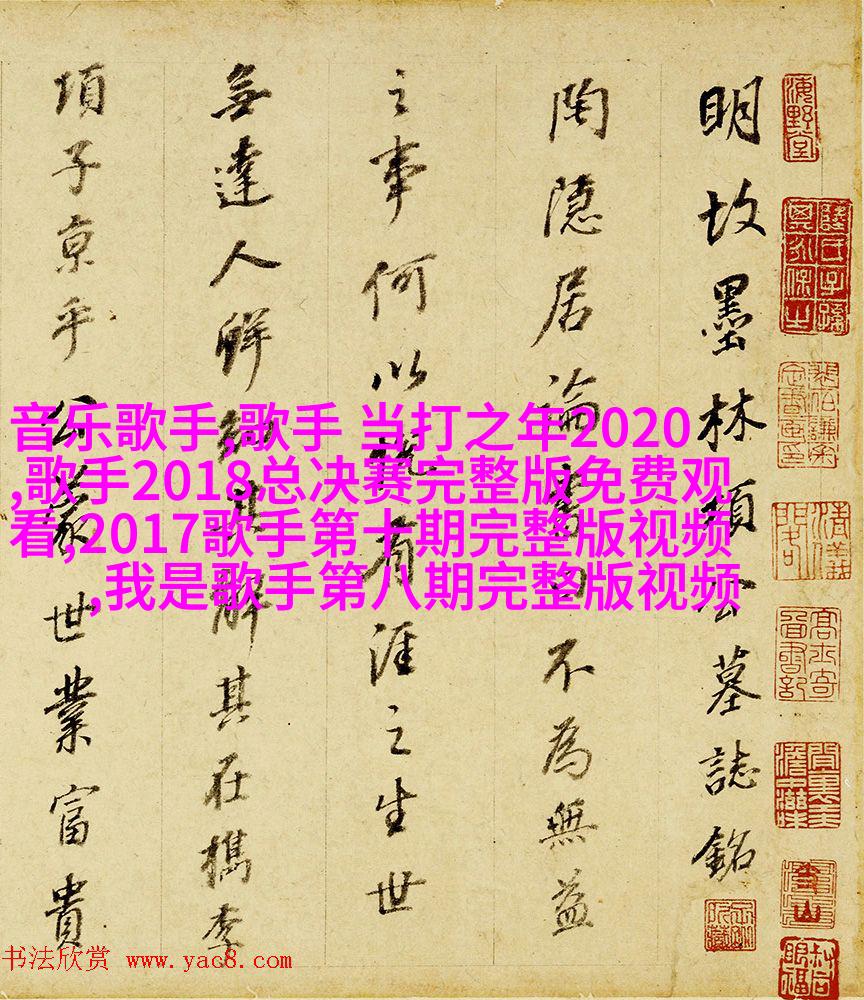 海野堂
明故墨林項公墓誌銘
陶隱居論書曰不為無益
之事何以悅有涯之生世
無達人鮮知其解其在檇李
項子京乎公蒙世業富貴
音乐歌手,歌手 当打之年2020
,歌手2018总决赛完整版免费观
看,2017歌手第十期完整版视频
,我是歌手第八期完整版视频
书法欣赏 www.yac8.com